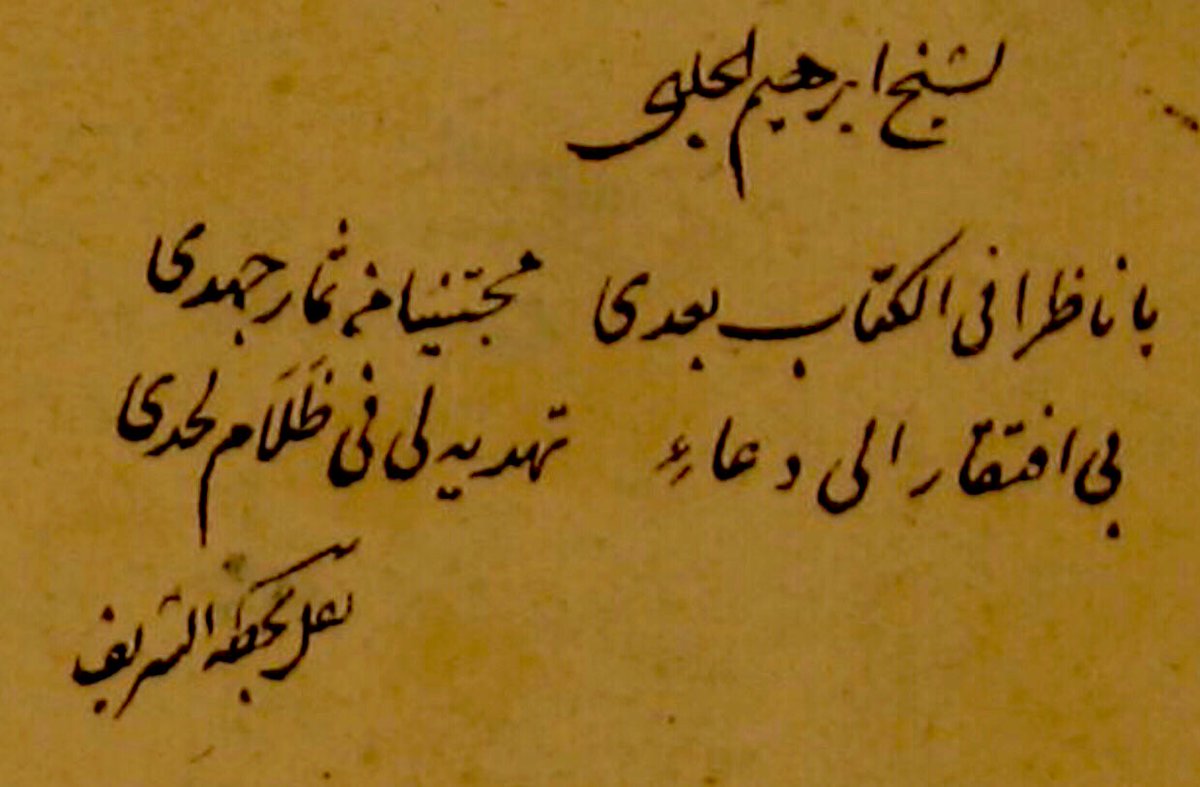 لشيخ ابرهيم الحلبى
يا ناظرا فى الكتاب بعدى مجتنيا من ثمار جهدى
بى افتقار الى دعاءٍ تهديه لى فى ظَلَام لحدى
نقل بخطه الشريف